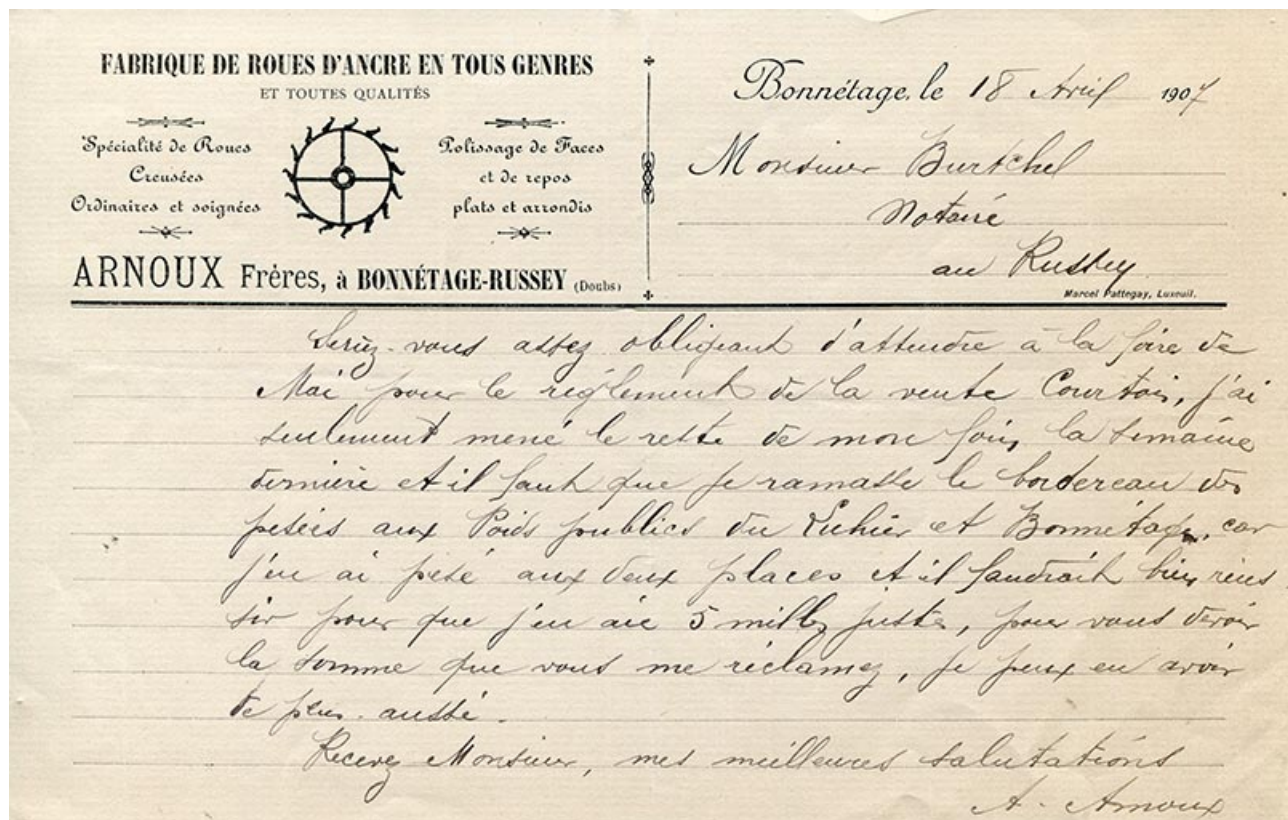 FABRIQUE DE ROUES D'ANCRE EN TOUS GENRES
ET TOUTES QUALITÉS
Spécialité de Roues
Creusées
Ordinaires et soignées
Polissage de Faces
et de repos
plats et arrondis
ARNOUX Frères, à BONNÉTAGE-RUSSEY (Doubs)
Bonnétage, le 18 Avril 1907
Monsieur Burtchel
Notaire
au Russey
Marcel Pattegay, Luxeuil.
Seriez-vous assez obligeant d'attendre à la foire de
Mai pour le règlement de la vente Courtois, j'ai
seulement mené le reste de mon foin la semaine
dernière et il faut que je ramasse le bordereau des
pesées aux Poids publics du Luhier et Bonnétage, car
j'en ai pesé aux deux places et il faudrait bien réus
sir pour que j'en aie 5 milles juste, pour vous devoir
la somme que vous me réclamez, je peux en avoir
de plus aussi.
Recevez Monsieur, mes meilleures salutations
A. Arnoux